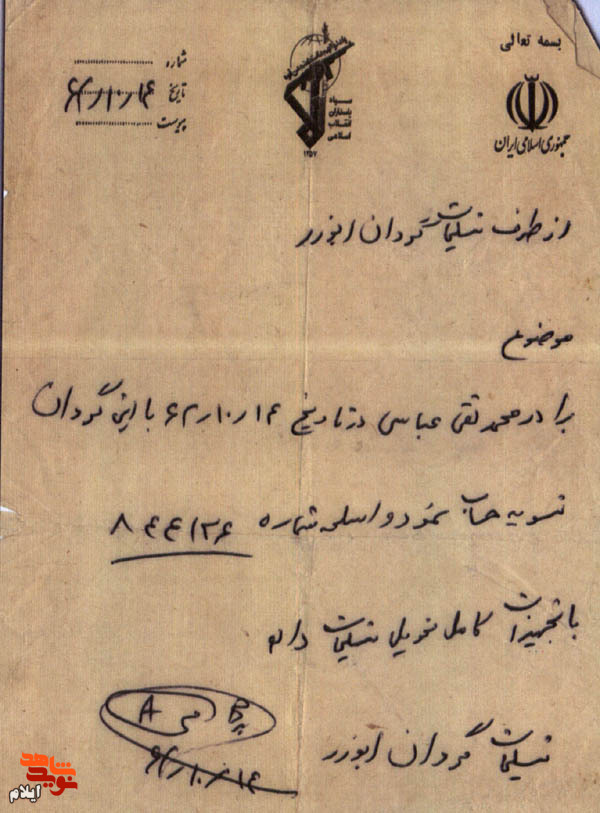 بسمه تعالی
جمهوری اسلامی ایران
سپاه
پاسداران
انقلاب
اسلامی
۱۳۵۷
شماره
تاریخ ۶۲/۱۰/۱۴
پیوست
از طرف تسلیحات گردان ابوذر
موضوع
برادر محمد تقی عباسی در تاریخ ۶۲/۱۰/۱۴ با این گردان
تسویه حساب نمود و اسلحه شماره ۸۴۴۱۳۶
با تجهیزات کامل تحویل تسلیحات داد
تسلیحات گردان ابوذر
۶۲/۱۰/۱۴
نوید شاهد
ایلام